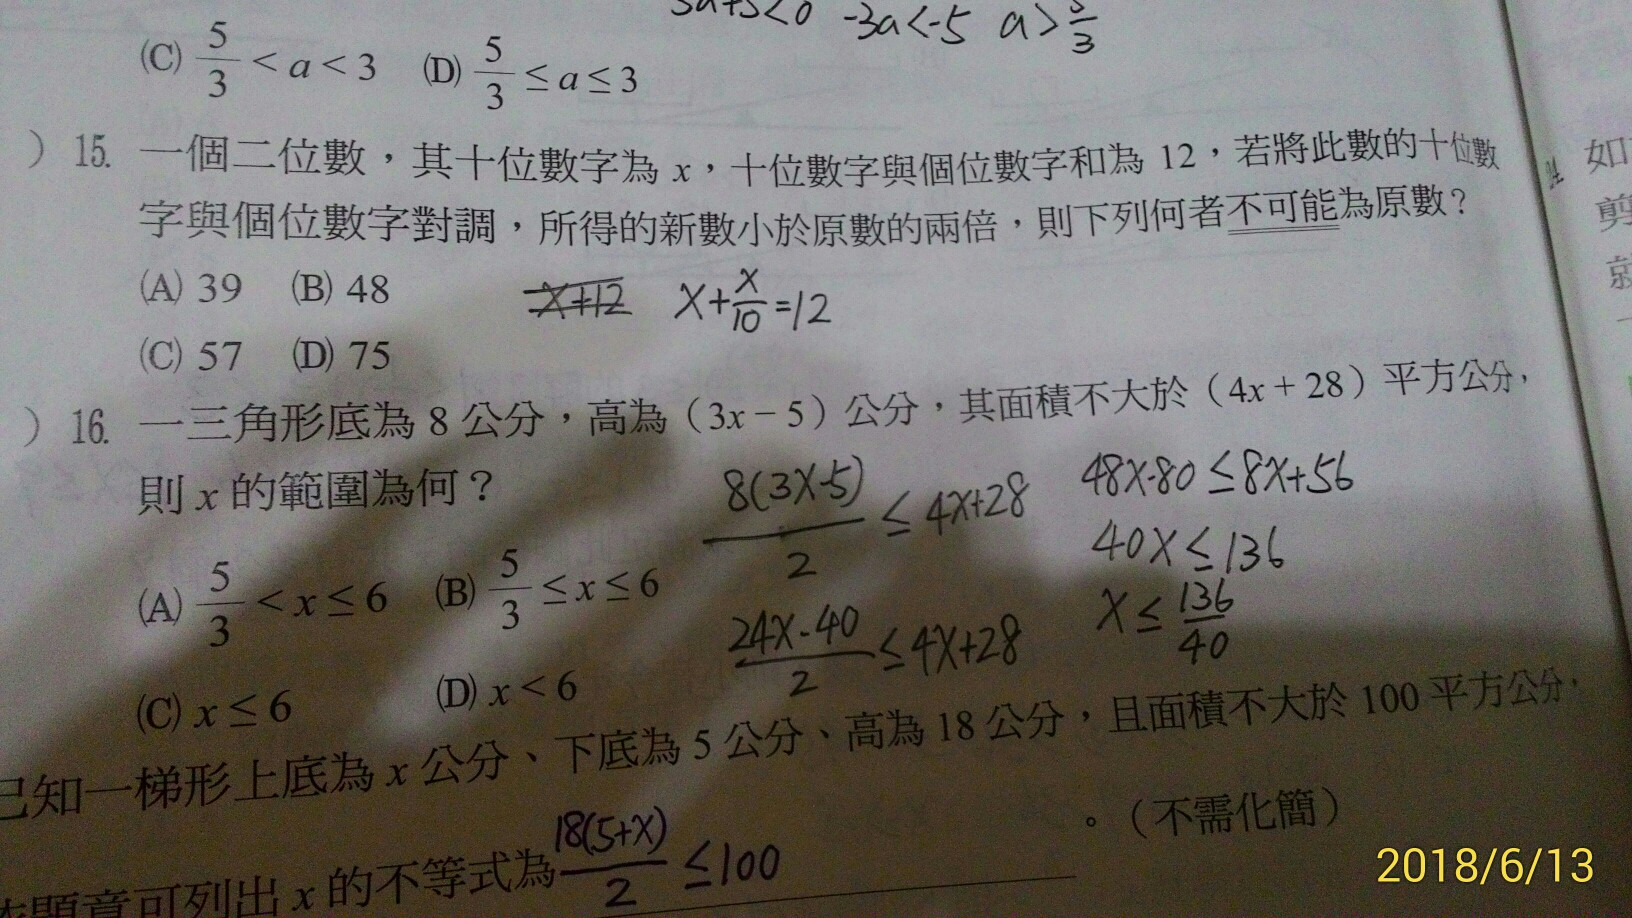 -3a<-5 a>5/3
(C) 5/3 < a < 3 (D) 5/3 ≤ a ≤ 3
) 15. 一個二位數，其十位數字為 x，十位數字與個位數字和為 12，若將此數的十位數
字與個位數字對調，所得的新數小於原數的兩倍，則下列何者不可能為原數？
(A) 39 (B) 48
x+12 x+x/10=12
(C) 57 (D) 75
) 16. 一三角形底為 8 公分，高為（3x－5）公分，其面積不大於（4x＋28）平方公分，
則 x 的範圍為何？
8(3x-5)/2 ≤ 4x+28
48x-80≤8x+56
40x≤136
(A) 5/3 < x ≤ 6 (B) 5/3 ≤ x ≤ 6
24x-40/2 ≤4x+28
x≤136/40
(C) x ≤ 6 (D) x < 6
已知一梯形上底為 x 公分、下底為 5 公分、高為 18 公分，且面積不大於 100 平方公分，
題意可列出 x 的不等式為 18(5+x)/2 ≤100 。（不需化簡）
24
如
剪
就
2018/6/13